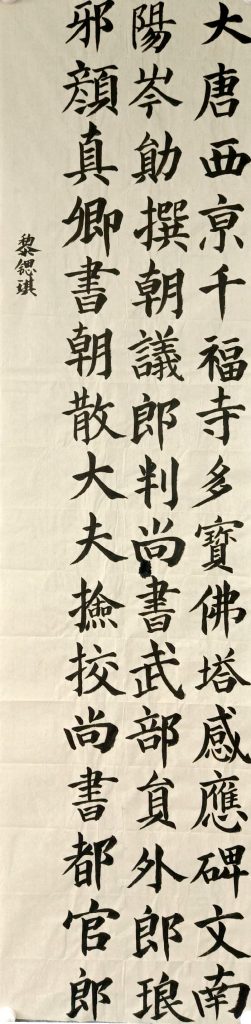 大唐西京千福寺多寶佛塔感應碑文南
陽岑勛撰朝議郎判尚書武部員外郎琅
邪顏真卿書朝散大夫撿挍尚書都官郎
黎鍶琪